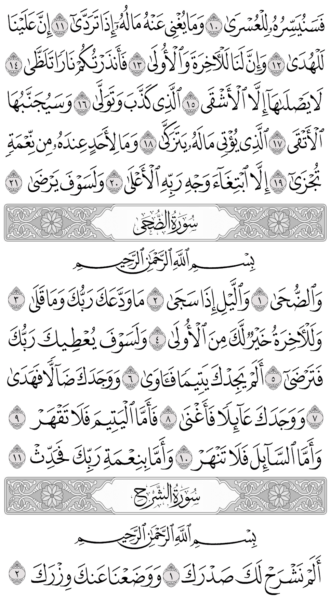 فَسَنُيَسِّرُهُۥ لِلۡعُسۡرَىٰ ١٠ وَمَا يُغۡنِي عَنۡهُ مَالُهُۥٓ إِذَا تَرَدَّىٰٓ ١١ إِنَّ عَلَيۡنَا
لَلۡهُدَىٰ ١٢ وَإِنَّ لَنَا لَلۡأٓخِرَةَ وَٱلۡأُولَىٰ ١٣ فَأَنذَرۡتُكُمۡ نَارٗا تَلَظَّىٰ ١٤
لَا يَصۡلَىٰهَآ إِلَّا ٱلۡأَشۡقَى ١٥ ٱلَّذِي كَذَّبَ وَتَوَلَّىٰ ١٦ وَسَيُجَنَّبُهَا
ٱلۡأَتۡقَى ١٧ ٱلَّذِي يُؤۡتِي مَالَهُۥ يَتَزَكَّىٰ ١٨ وَمَا لِأَحَدٍ عِندَهُۥ مِن نِّعۡمَةٖ
تُجۡزَىٰٓ ١٩ إِلَّا ٱبۡتِغَآءَ وَجۡهِ رَبِّهِ ٱلۡأَعۡلَىٰ ٢٠ وَلَسَوۡفَ يَرۡضَىٰ ٢١
سُورَةُ الضُّحَىٰ
بِسۡمِ ٱللَّهِ ٱلرَّحۡمَٰنِ ٱلرَّحِيمِ
وَٱلضُّحَىٰ ١ وَٱلَّيۡلِ إِذَا سَجَىٰ ٢ مَا وَدَّعَكَ رَبُّكَ وَمَا قَلَىٰ ٣
وَلَلۡأٓخِرَةُ خَيۡرٞ لَّكَ مِنَ ٱلۡأُولَىٰ ٤ وَلَسَوۡفَ يُعۡطِيكَ رَبُّكَ
فَتَرۡضَىٰٓ ٥ أَلَمۡ يَجِدۡكَ يَتِيمٗا فَـَٔاوَىٰ ٦ وَوَجَدَكَ ضَآلّٗا فَهَدَىٰ
٧ وَوَجَدَكَ عَآئِلٗا فَأَغۡنَىٰ ٨ فَأَمَّا ٱلۡيَتِيمَ فَلَا تَقۡهَرۡ ٩
وَأَمَّا ٱلسَّآئِلَ فَلَا تَنۡهَرۡ ١٠ وَأَمَّا بِنِعۡمَةِ رَبِّكَ فَحَدِّثۡ ١١
سُورَةُ الشَّرۡحِ
بِسۡمِ ٱللَّهِ ٱلرَّحۡمَٰنِ ٱلرَّحِيمِ
أَلَمۡ نَشۡرَحۡ لَكَ صَدۡرَكَ ١ وَوَضَعۡنَا عَنكَ وِزۡرَكَ ٢